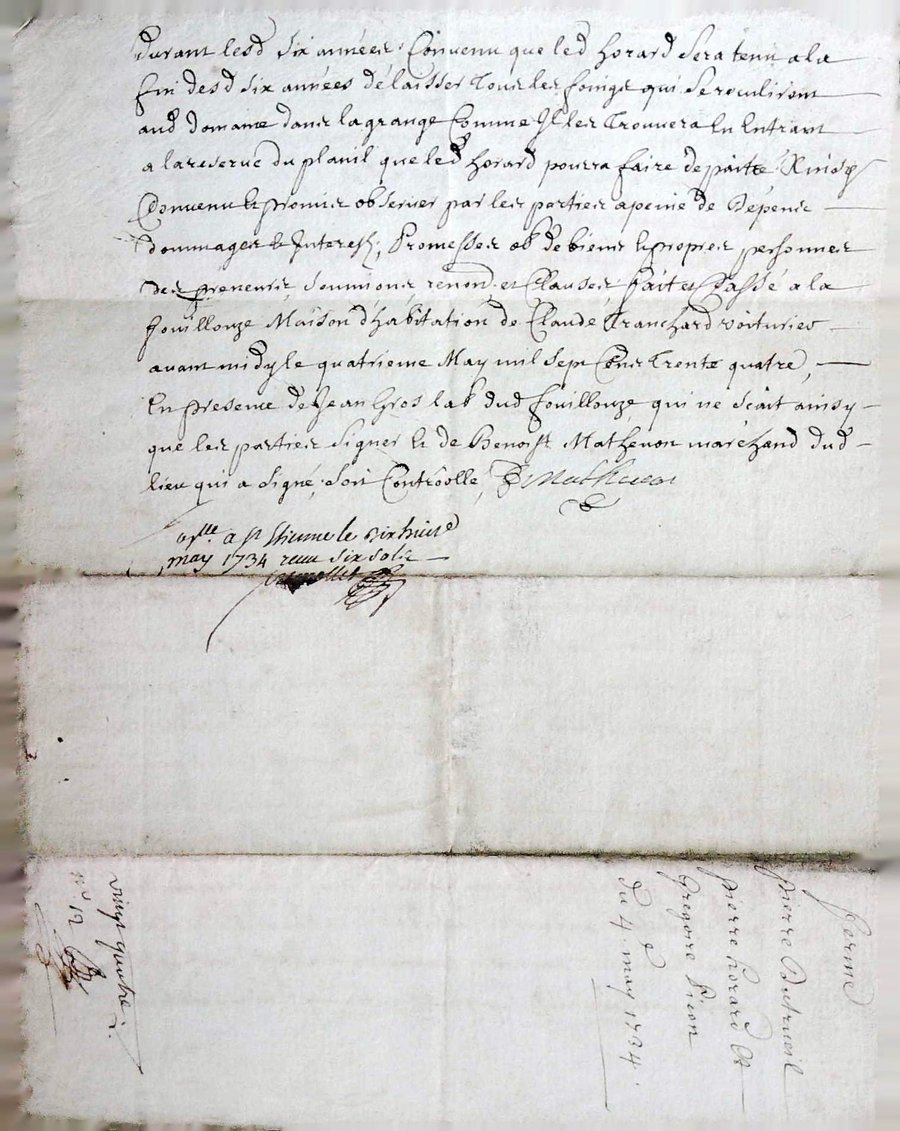 durant lesd six années. Convenu que led horard sera tenu a la
fin desd six années délaisser tous les foings qui se reculliront
aud domaine dans la grange Comme Il les trouvera En Entrant
a la reserve du planil que led horard pourra faire depaitre Ainsy
Convenu et promis observer par les parties a peine de Dépens
dommages et Interest, Promesses ob de biens et propres personnes
des preneurs, soumions renon. et Clauses fait et Passé a la
fouillouze Maison d'habitation de Claude Tranchard voiturier
avant midy le quatrieme May mil sept Cens Trente quatre,
En presence de Jean Gros lab dud fouillouze qui ne scait ainsy
que les parties signer et de Benoist Mathevon marchand dud
lieu qui a signé, soit Controolle, B Mathevon
a St Etienne le dix huit
may 1734 receu six sols
ferme
pierre Dutrueil
pierre horard et
gregoire Picon
du 4e may 1734.
vingt quatre
no 12